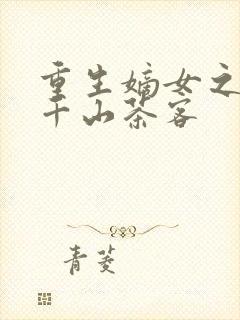 重生嫡女之
千山茶客
青菱